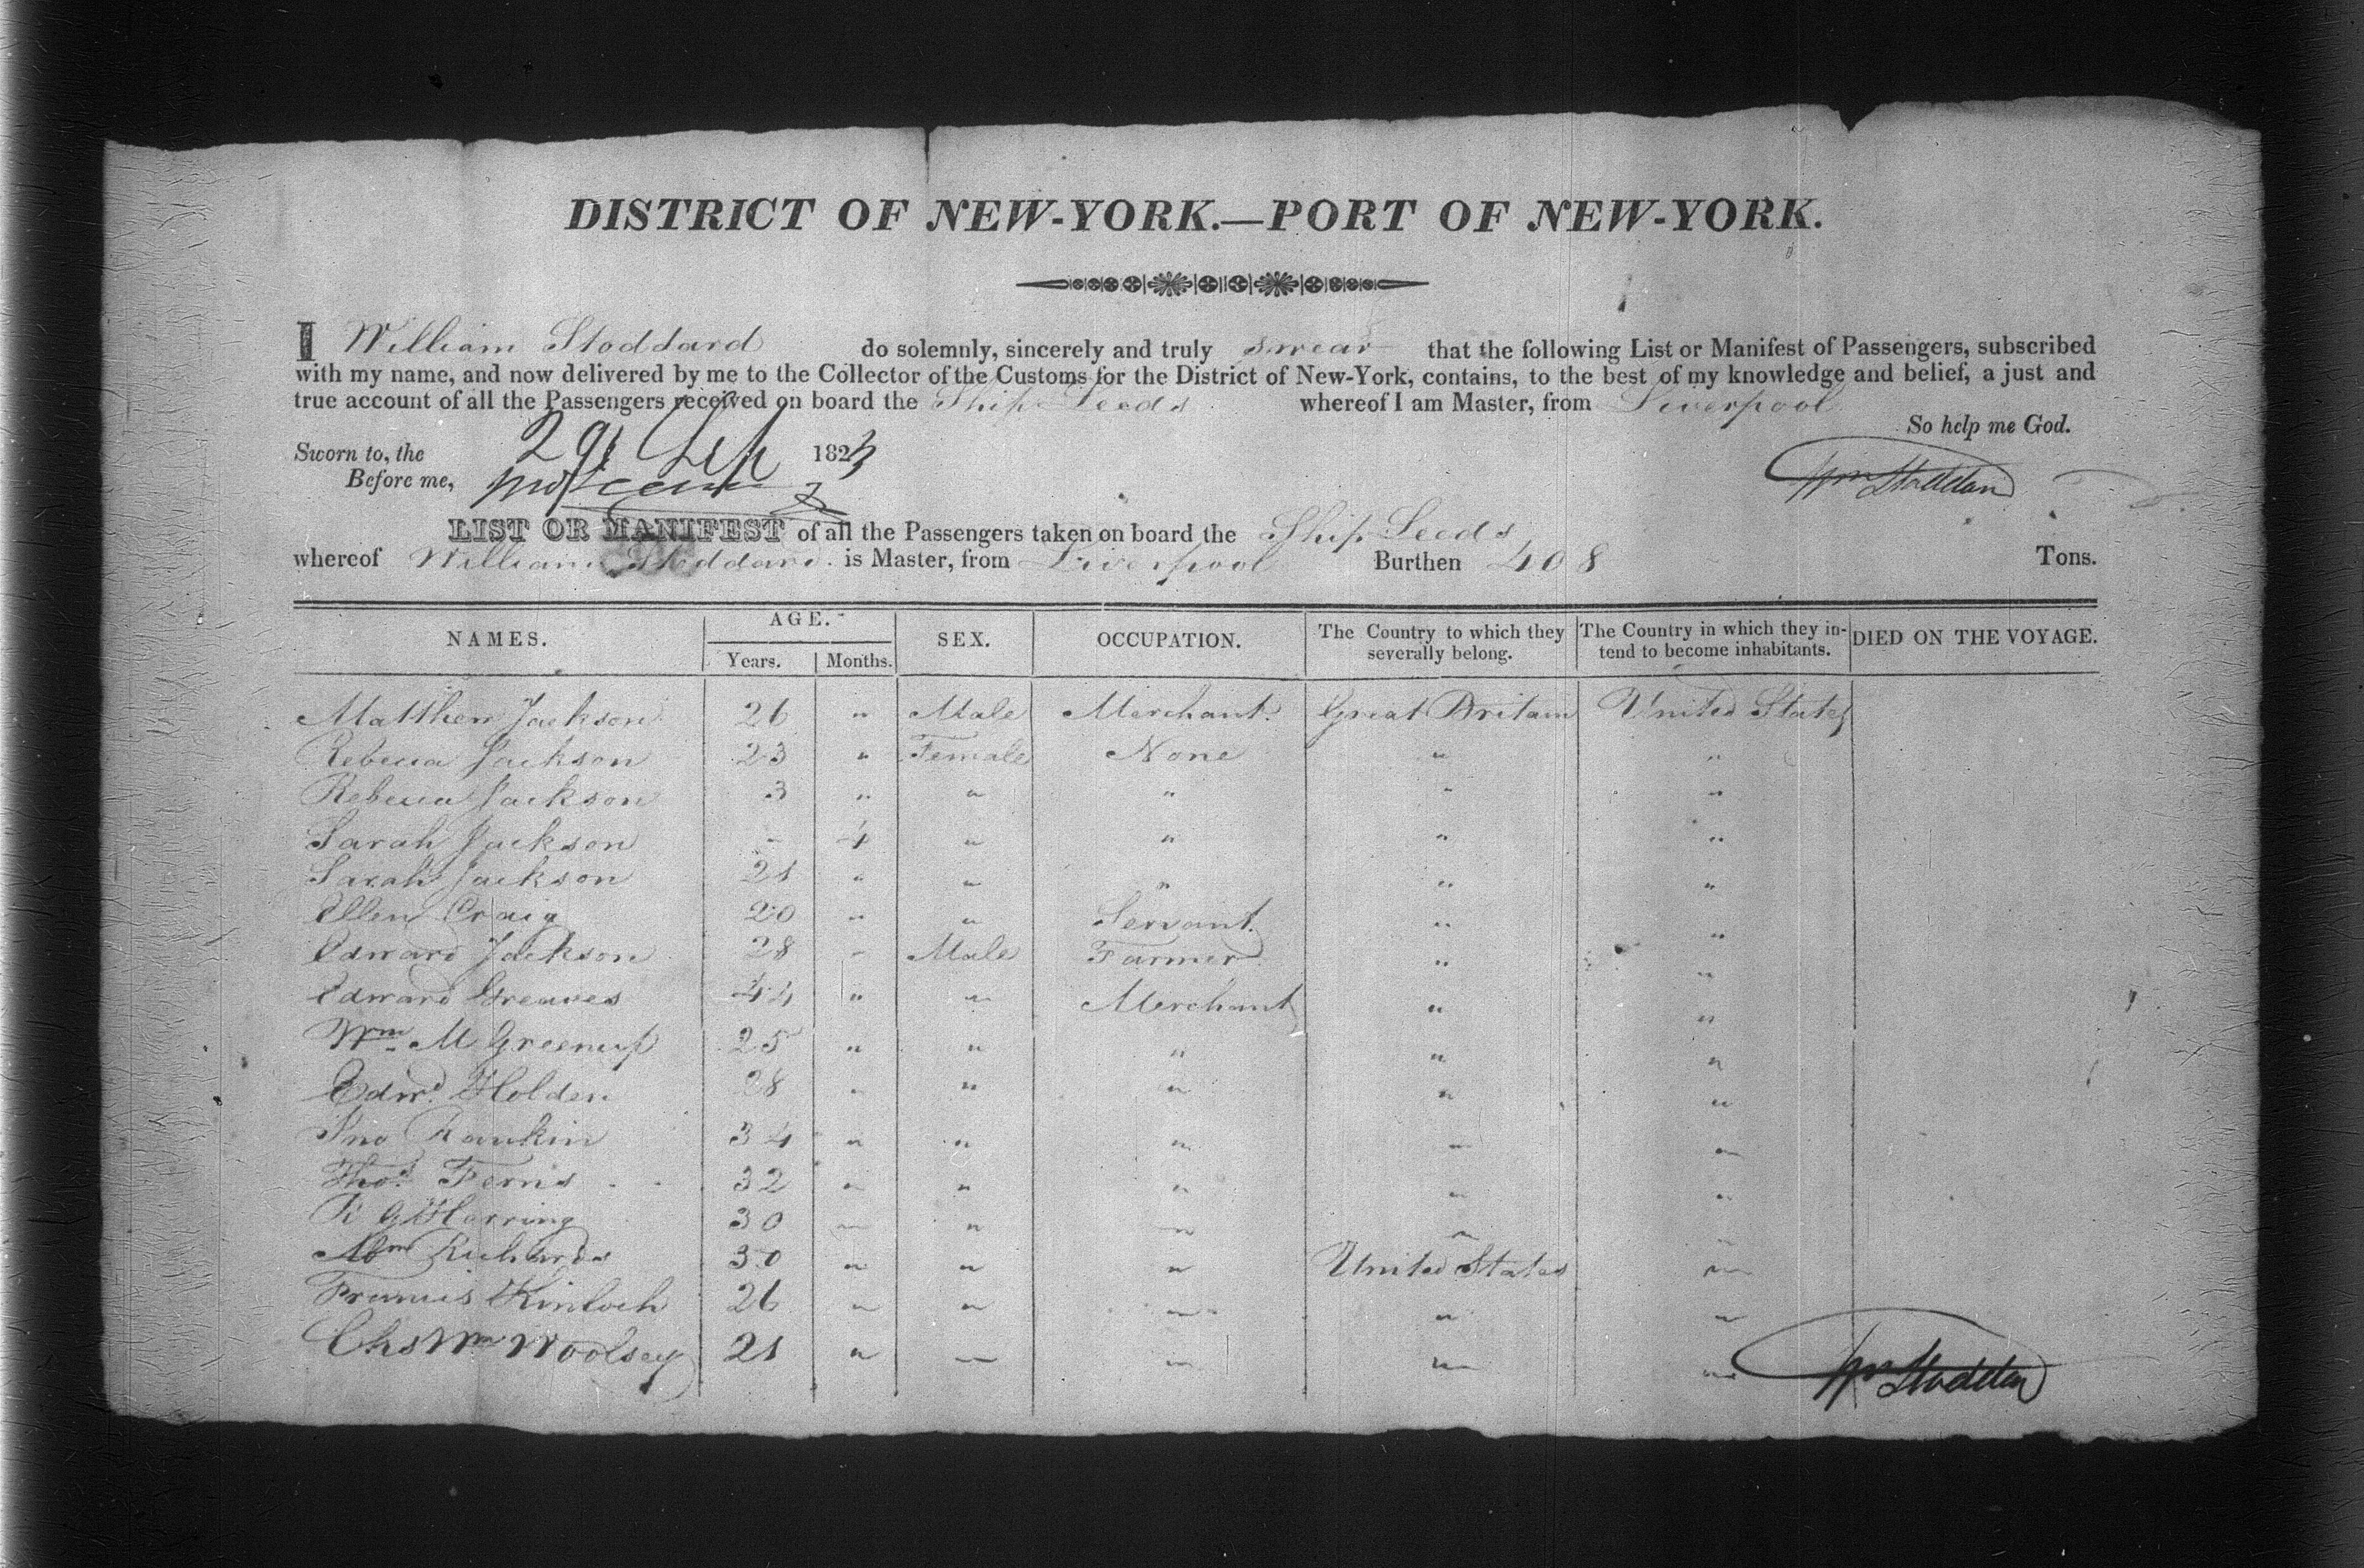 DISTRICT OF NEW-YORK.—PORT OF NEW-YORK.
I William Stoddard do solemnly, sincerely and truly swear that the following List or Manifest of Passengers, subscribed
with my name, and now delivered by me to the Collector of the Customs for the District of New-York, contains, to the best of my knowledge and belief, a just and
true account of all the Passengers received on board the Ship Leeds whereof I am Master, from Liverpool
So help me God.
Sworn to, the 29 Sep 1823
Before me,
Wm Stoddard
LIST OR MANIFEST of all the Passengers taken on board the Ship Leeds
whereof William Stoddard is Master, from Liverpool Burthen 408 Tons.
NAMES. AGE. Years. Months. SEX. OCCUPATION. The Country to which they severally belong. The Country in which they intend to become inhabitants. DIED ON THE VOYAGE.
Matthew Jackson 26 " Male Merchant Great Britain United States
Rebecca Jackson 23 " Female None " "
Rebecca Jackson 3 " " " " "
Sarah Jackson - 4 " " " "
Sarah Jackson 21 " " " " "
Ellen Craig 20 " " Servant " "
Edward Jackson 28 " Male Farmer " "
Edward Greaves 44 " " Merchant " "
Wm M Greenup 25 " " " " "
Edwd Holden 28 " " " " "
Jno Rankin 34 " " " " "
Thos Ferris 32 " " " " "
Harring 30 " " " " "
Abm Richards 30 " " " United States "
Francis Kinloch 26 " " " " "
Chs Wm Woolsey 21 " " " " "
Wm Stoddard